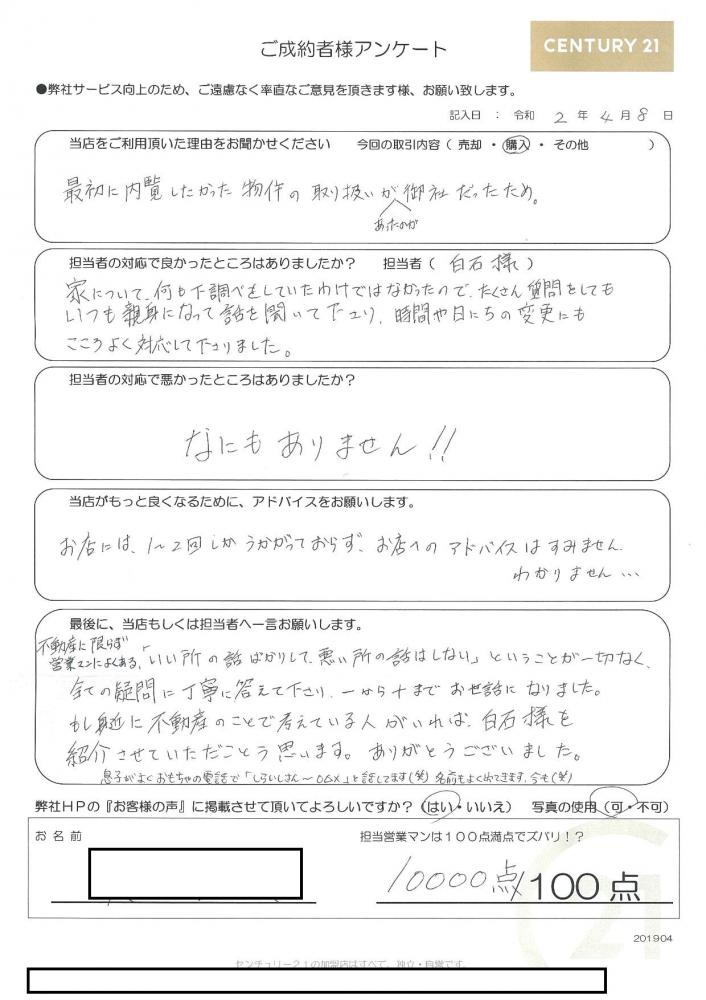 ご成約者様アンケート
CENTURY 21
●弊社サービス向上のため、ご遠慮なく率直なご意見を頂きます様、お願い致します。
記入日 : 令和 2 年 4 月 8 日
当店をご利用頂いた理由をお聞かせください 今回の取引内容 ( 売却 ・ 購入 ・ その他 )
最初に内覧したかった物件の取り扱いが御社だったため。
あったのが
担当者の対応で良かったところはありましたか? 担当者 ( 白石様 )
家について、何も下調べをしていたわけではなかったので、たくさん質問をしても
いつも親身になって話を聞いて下さり、時間や日にちの変更にも
こころよく対応して下さりました。
担当者の対応で悪かったところはありましたか?
なにもありません!!
当店がもっと良くなるために、アドバイスをお願いします。
お店には、1~2回しかうかがっておらず、お店へのアドバイスはすみません
わかりません…
最後に、当店もしくは担当者へ一言お願いします。
不動産に限らず
営業マンによくある、「いい所の話ばかりして、悪い所の話はしない」ということが一切なく、
全ての疑問に丁寧に答えて下さり、一から十までお世話になりました。
もし身近に不動産のことで考えている人がいれば、白石様を
紹介させていただこうと思います。ありがとうございました。
息子がよくおもちゃの電話で「しらいしさん~」と話してます(笑) 名前もよく出てきます、今も(笑)
弊社HPの『お客様の声』に掲載させて頂いてよろしいですか? (はい・いいえ) 写真の使用 (可・不可)
お名前
担当営業マンは100点満点でズバリ!?
10000点/100点
201904
センチュリー21の加盟店はすべて、独立・自営です。